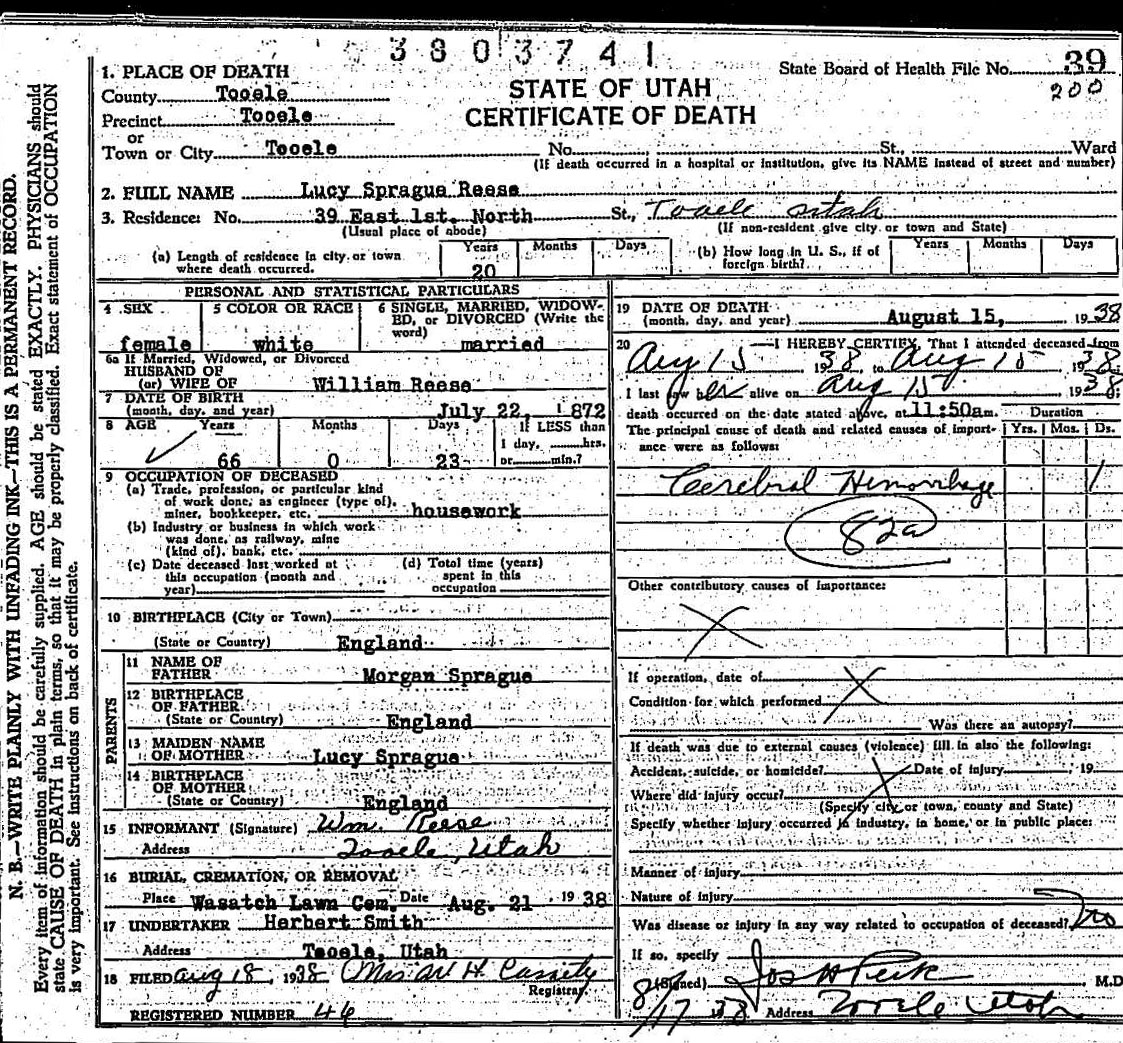 3803741
State Board of Health File No. 39
200
STATE OF UTAH
CERTIFICATE OF DEATH
1. PLACE OF DEATH
County Tooele
Precinct Tooele
or
Town or City Tooele No. St., Ward
(If death occurred in a hospital or institution, give its NAME instead of street and number)
2. FULL NAME Lucy Sprague Reese
3. Residence: No. 39 East 1st. North St., Tooele Utah
(Usual place of abode) (If non-resident give city or town and State)
(a) Length of residence in city or town where death occurred. Years 20 Months Days
(b) How long in U. S., if of foreign birth? Years Months Days
PERSONAL AND STATISTICAL PARTICULARS
4 SEX female
5 COLOR OR RACE white
6 SINGLE, MARRIED, WIDOWED, or DIVORCED (Write the word) married
6a If Married, Widowed, or Divorced
HUSBAND OF
(or) WIFE OF William Reese
7 DATE OF BIRTH
(month, day, and year) July 22, 1872
8 AGE Years 66 Months 0 Days 23 If LESS than 1 day, hrs. or min.?
9 OCCUPATION OF DECEASED
(a) Trade, profession, or particular kind
of work done, as engineer (type of),
miner, bookkeeper, etc. housework
(b) Industry or business in which work
was done, as railway, mine
(kind of), bank, etc.
(c) Date deceased last worked at
this occupation (month and
year)
(d) Total time (years)
spent in this
occupation
10 BIRTHPLACE (City or Town)
(State or Country) England
PARENTS
11 NAME OF
FATHER Morgan Sprague
12 BIRTHPLACE
OF FATHER
(State or Country) England
13 MAIDEN NAME
OF MOTHER Lucy Sprague
14 BIRTHPLACE
OF MOTHER
(State or Country) England
15 INFORMANT (Signature) Wm. Reese
Address Tooele, Utah
16 BURIAL, CREMATION, OR REMOVAL
Place Wasatch Lawn Cem. Date Aug. 21, 1938
17 UNDERTAKER Herbert Smith
Address Tooele, Utah
18 FILED Aug 18, 1938 H. Cassity
Registrar
REGISTERED NUMBER 46
19 DATE OF DEATH
(month, day, and year) August 15, 1938
20 I HEREBY CERTIFY, That I attended deceased from
Aug 15 1938, to Aug 15 1938;
I last saw her alive on Aug 15 1938;
death occurred on the date stated above, at 11:50am. Duration
The principal cause of death and related causes of importance were as follows: Yrs. Mos. Ds.
Cerebral Hemorrhage 1
82a
Other contributory causes of importance:
X
If operation, date of
Condition for which performed X
Was there an autopsy?
If death was due to external causes (violence) fill in also the following:
Accident, suicide, or homicide? X Date of injury, 19
Where did injury occur?
(Specify city or town, county and State)
Specify whether injury occurred in industry, in home, or in public place:
Manner of injury
Nature of injury
Was disease or injury in any way related to occupation of deceased? no
If so, specify
(Signed) Jos H Peck, M.D
8/17 38 Address Tooele Utah
N. B.—WRITE PLAINLY WITH UNFADING INK—THIS IS A PERMANENT RECORD.
Every item of information should be carefully supplied. AGE should be stated EXACTLY. PHYSICIANS should
state CAUSE OF DEATH in plain terms, so that it may be properly classified. Exact statement of OCCUPATION
is very important. See instructions on back of certificate.